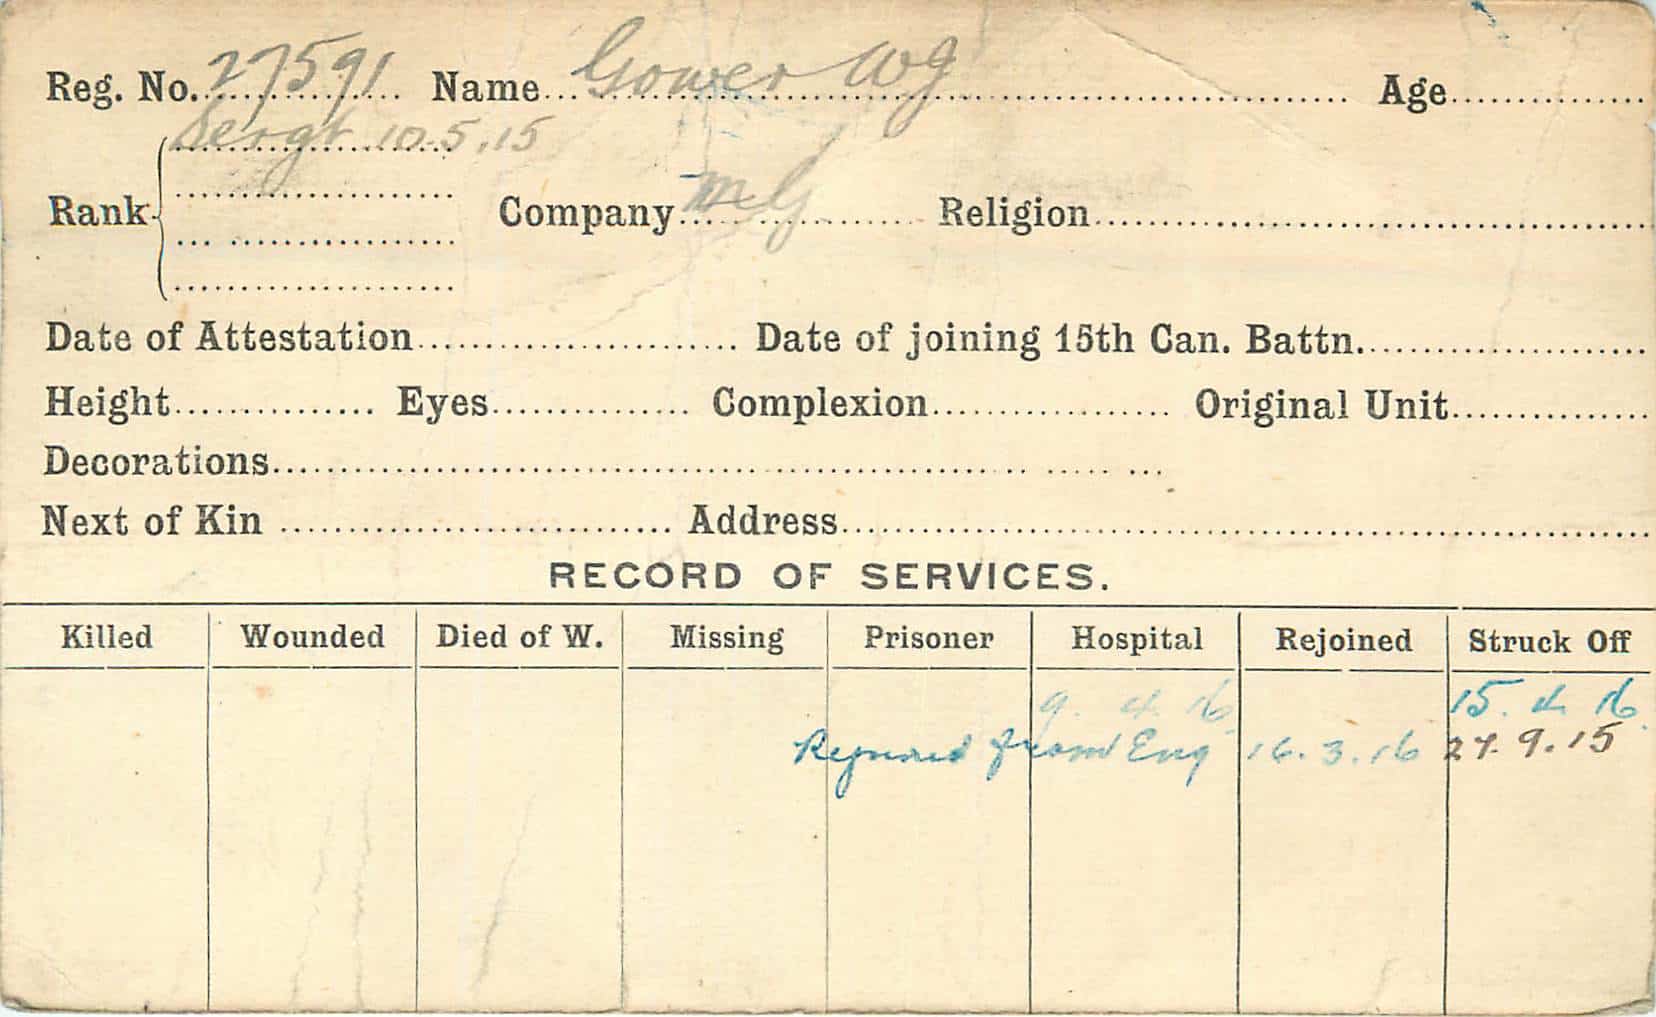 Reg. No. 27591 Name Gower WG Age
Sergt 10.5.15
Rank Company MG Religion
Date of Attestation Date of joining 15th Can. Battn.
Height Eyes Complexion Original Unit
Decorations
Next of Kin Address
RECORD OF SERVICES.
Killed Wounded Died of W. Missing Prisoner Hospital Rejoined Struck Off
9. 4. 16 15. 4. 16
Rejoined from Eng 16.3.16 27.9.15